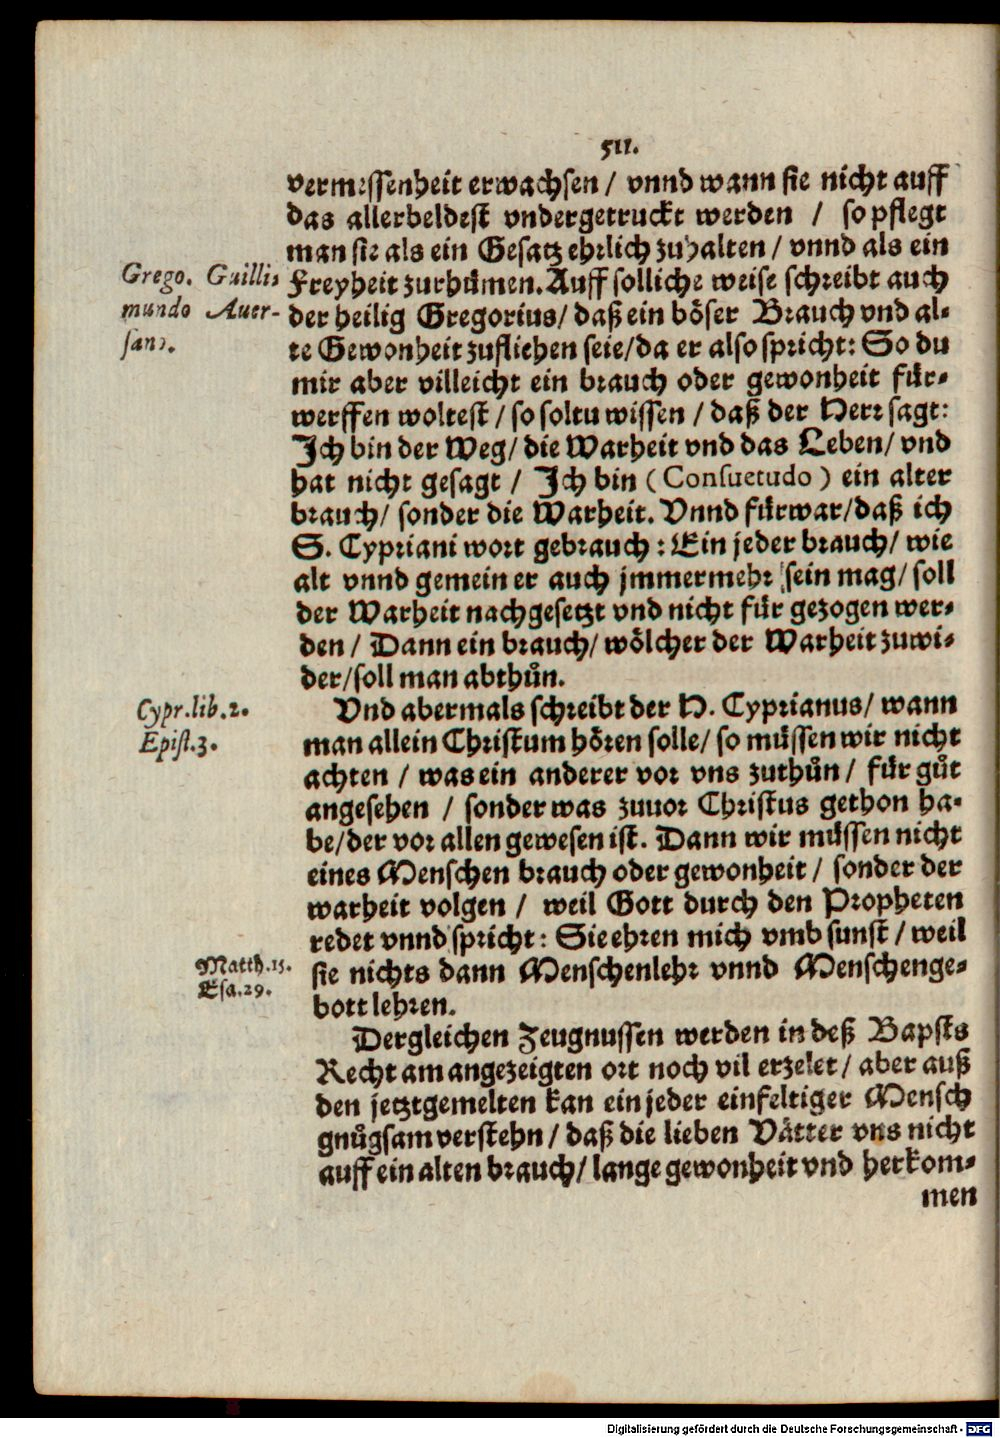 511.
vermessenheit erwachsen / vnnd wann sie nicht auff
das allerbeldest vndergetruckt werden / so pflegt
man sie als ein Gesatz ehrlich zuhalten / vnnd als ein
Grego. Guilli-
mundo Auer-
san).
Freyheit zurhümen. Auff solliche weise schreibt auch
der heilig Gregorius / daß ein böser Brauch vnd al-
te Gewonheit zufliehen seie / da er also spricht: So du
mir aber villeicht ein brauch oder gewonheit für-
werffen woltest / so soltu wissen / daß der Herr sagt:
Ich bin der Weg / die Warheit vnd das Leben / vnd
hat nicht gesagt / Ich bin (Consuetudo) ein alter
brauch / sonder die Warheit. Vnnd fürwar / daß ich
S. Cypriani wort gebrauch: Ein jeder brauch / wie
alt vnnd gemein er auch jmmermehr sein mag / soll
der Warheit nachgesetzt vnd nicht für gezogen wer-
den / Dann ein brauch / wölcher der Warheit zuwi-
der / soll man abthůn.
Cypr. lib. 2.
Epist. 3.
Vnd abermals schreibt der H. Cyprianus / wann
man allein Christum hören solle / so müssen wir nicht
achten / was ein anderer vor vns zuthůn / für gůt
angesehen / sonder was zuuor Christus gethon ha-
be / der vor allen gewesen ist. Dann wir müssen nicht
eines Menschen brauch oder gewonheit / sonder der
warheit volgen / weil Gott durch den Propheten
redet vnnd spricht: Sie ehren mich vmb sunst / weil
Matth. 15.
Esa. 29.
sie nichts dann Menschenlehr vnnd Menschenge-
bott lehren.
Dergleichen Zeugnussen werden in deß Bapsts
Recht am angezeigten ort noch vil erzelet / aber auß
den jetztgemelten kan ein jeder einfeltiger Mensch
gnůgsam verstehn / daß die lieben Vätter vns nicht
auff ein alten brauch / lange gewonheit vnd herkom-
men
Digitalisierung gefördert durch die Deutsche Forschungsgemeinschaft - DFG